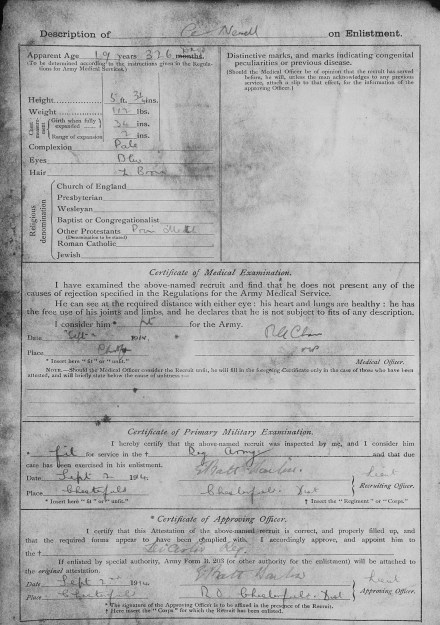 Description of on Enlistment.
Apparent Age 19 years 326
(To be determined according to the instructions given in the Regulations for Army Medical Services.)
Height 5 ft. ins.
Weight lbs.
Chest measurement
Girth when fully expanded 34 ins.
Range of expansion ins.
Complexion Pale
Eyes Blue
Hair
Religious denomination
Church of England
Presbyterian
Wesleyan
Baptist or Congregationalist
Other Protestants Prim Meth
(Denomination to be stated)
Roman Catholic
Jewish
Distinctive marks, and marks indicating congenital
peculiarities or previous disease.
(Should the Medical Officer be of opinion that the recruit has served before, he will, unless the man acknowledges to any previous service, attach a slip to that effect, for the information of the approving Officer.)
Certificate of Medical Examination.
I have examined the above-named recruit and find that he does not present any of the
causes of rejection specified in the Regulations for the Army Medical Service.
He can see at the required distance with either eye: his heart and lungs are healthy: he has
the free use of his joints and limbs, and he declares that he is not subject to fits of any description.
I consider him * fit for the Army.
Date 1914.
Place
Medical Officer.
* Insert here "fit" or "unfit."
NOTE.—Should the Medical Officer consider the Recruit unfit, he will fill in the foregoing Certificate only in the case of those who have been
attested, and will briefly state below the cause of unfitness:—
Certificate of Primary Military Examination.
I hereby certify that the above-named recruit was inspected by me, and I consider
him * fit for service in the † Reg Army and that due
care has been exercised in his enlistment.
Date Sept 2 1914.
Place Chesterfield Chesterfield. Dist
Recruiting Officer.
* Insert here "fit" or "unfit." † Insert the "Regiment" or "Corps."
* Certificate of Approving Officer.
I certify that this Attestation of the above-named recruit is correct, and properly filled up, and
that the required forms appear to have been complied with. I accordingly approve, and appoint him to
the †
If enlisted by special authority, Army Form B. 203 (or other authority for the enlistment) will be attached to
the original attestation.
Date Sept 2nd 1914
Place Chesterfield R.O. Chesterfield. Dist
Approving Officer.
* The signature of the Approving Officer is to be affixed in the presence of the Recruit.
† Here insert the "Corps" for which the Recruit has been enlisted.